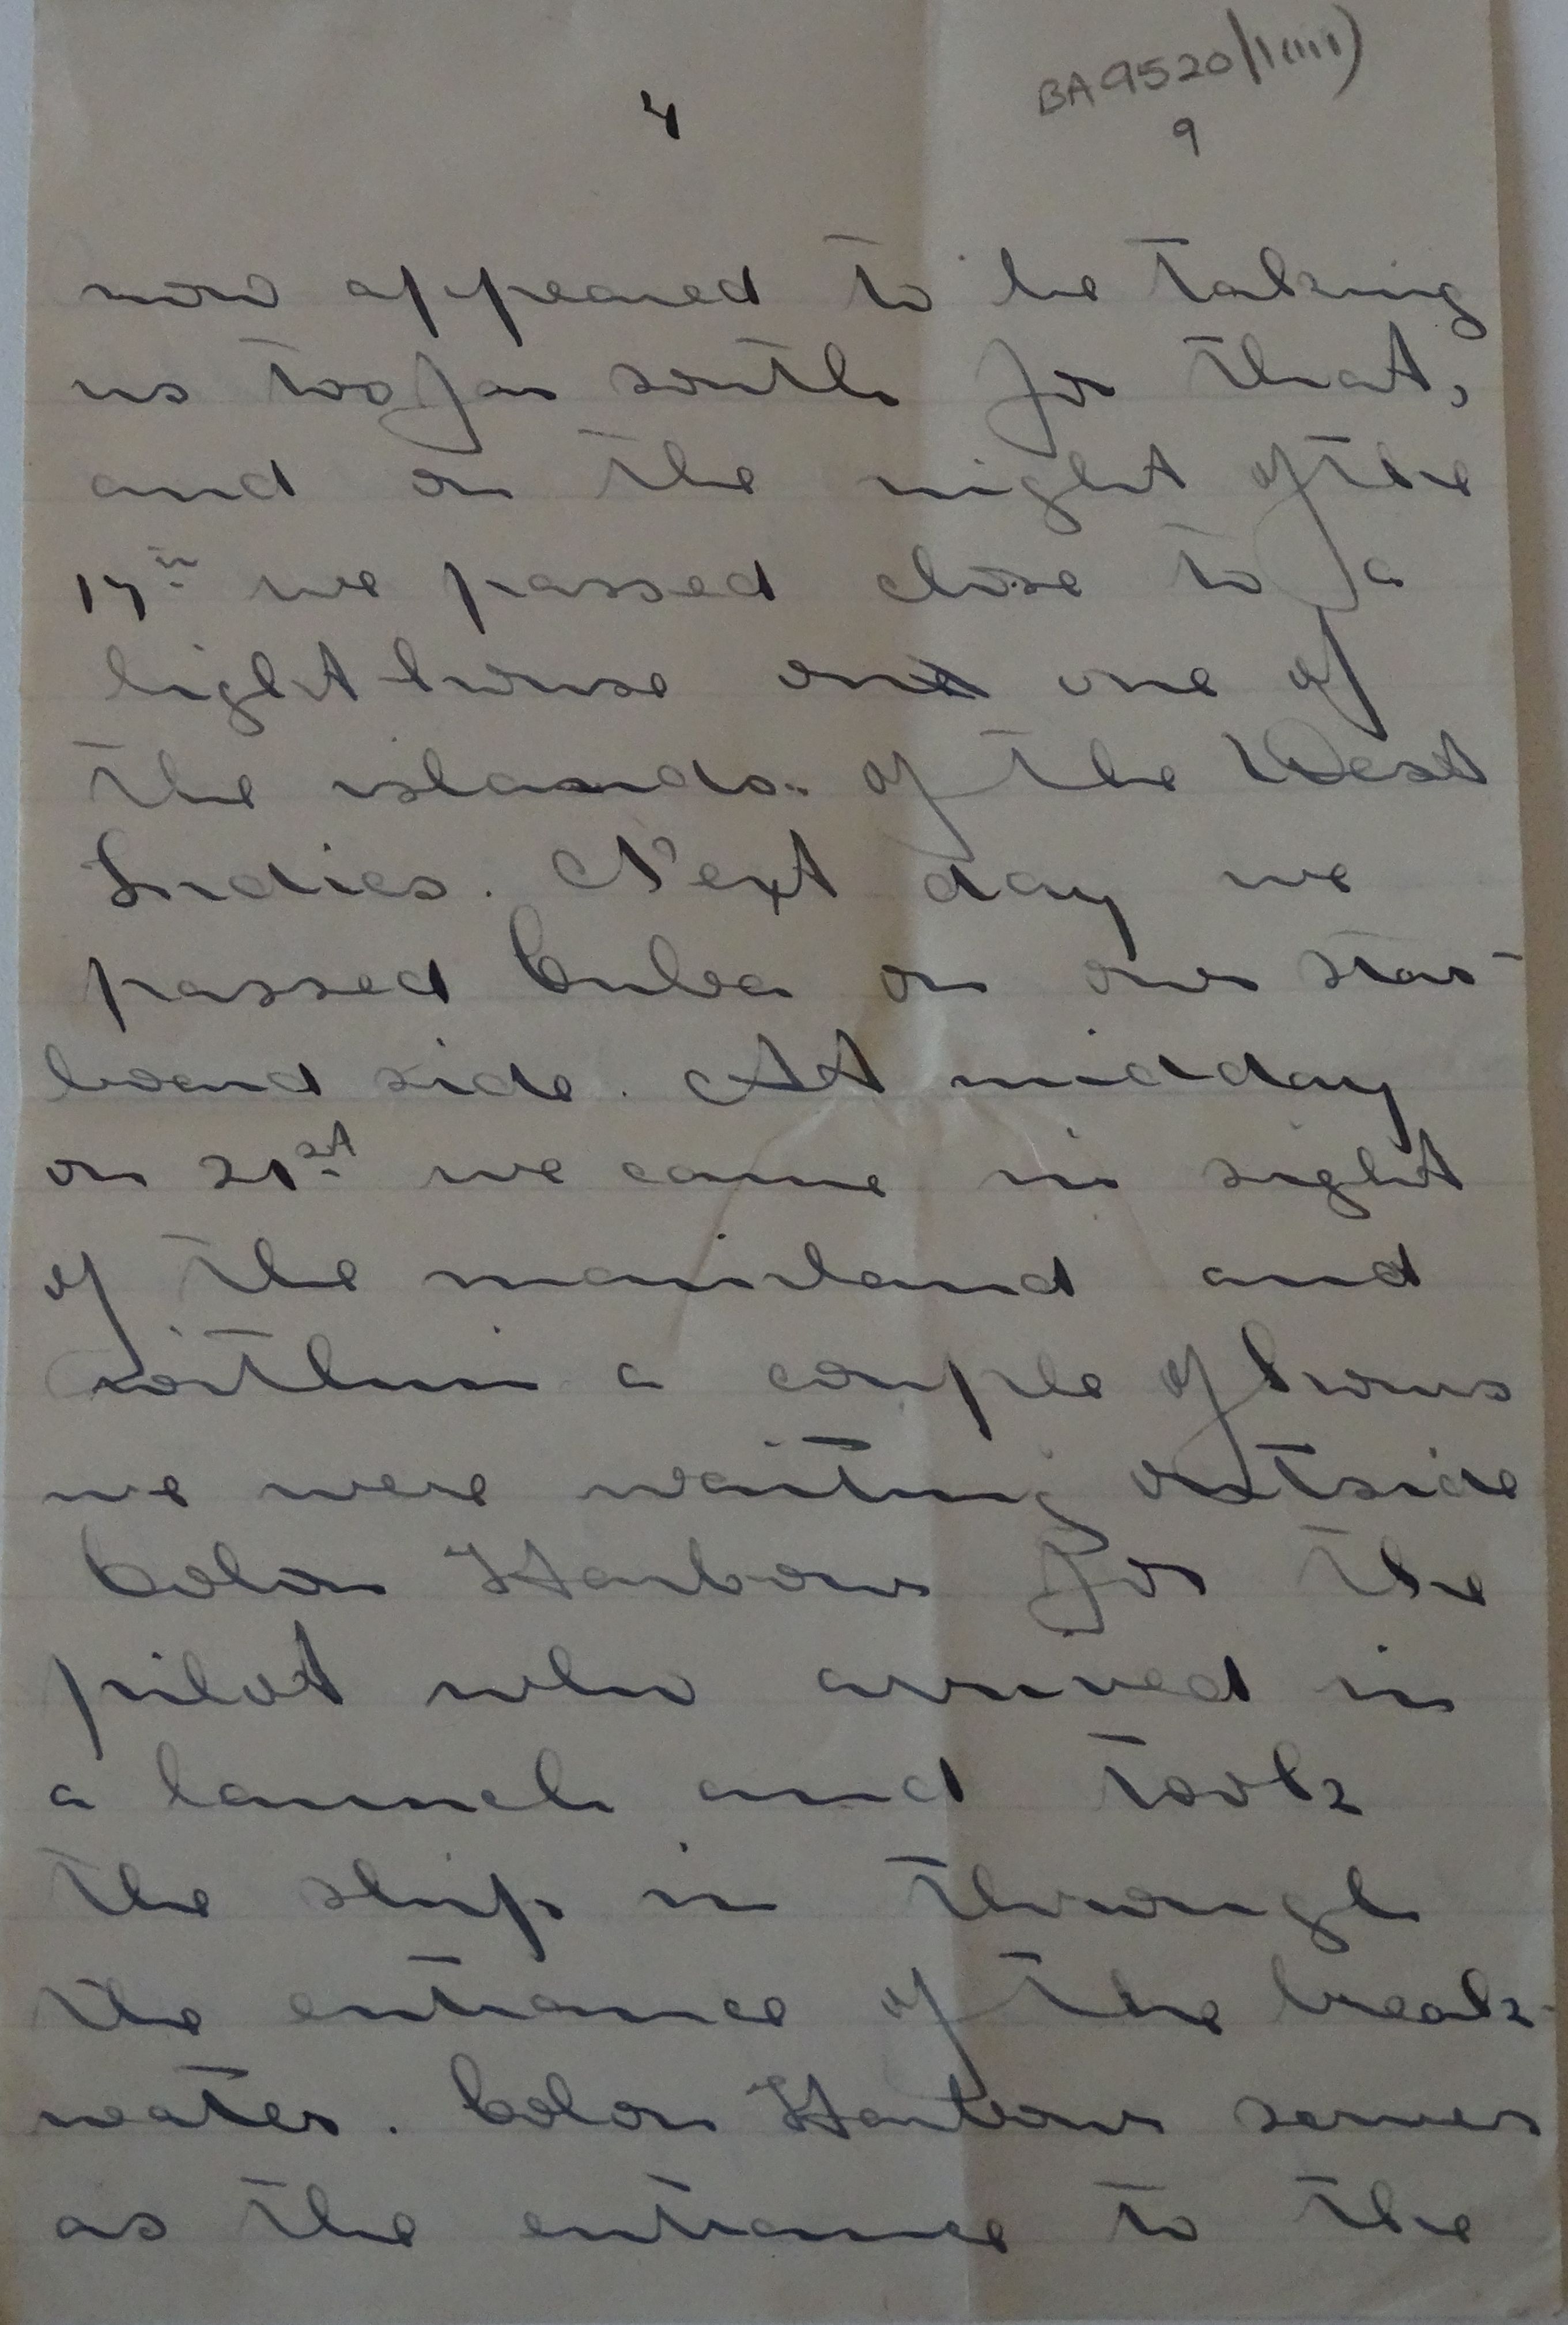 4
BA9520/1(iii)
9
now appeared to be taking
us too far south for that,
and on the night of the
17th we passed close to a
light house on one of
the islands. of the West
Indies. Next day we
passed Cuba on our star-
board side. At midday
on 21st we came in sight
of the mainland and
within a couple of hours
we were waiting outside
Colon Harbour for the
pilot who arrived in
a launch and took
the ship in through
the entrance of the break-
water. Colon Harbour serves
as the entrance to the